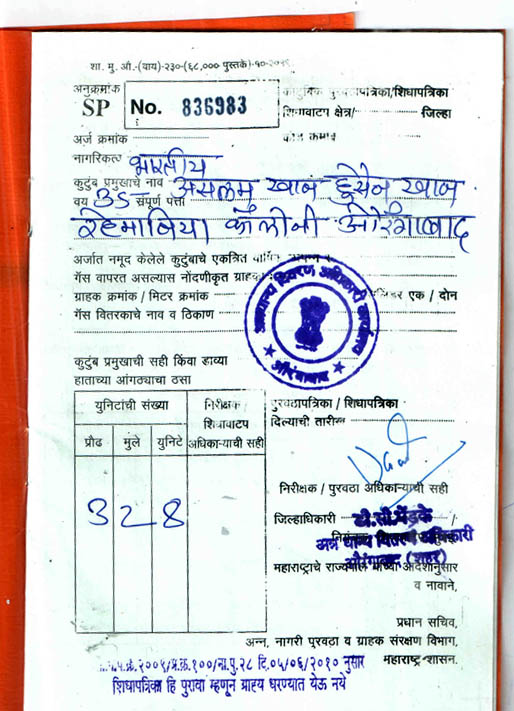 शा. मु. औ.-(वाय)-२३०-(६८,००० पुस्तके)-१०-२०११
अनुक्रमांक
SP No. 836983
पुरवठापत्रिका/शिधापत्रिका
शिधावाटप क्षेत्र/ जिल्हा
अर्ज क्रमांक
नागरिकत्व भारतीय
कुटुंब प्रमुखाचे नाव असलम खान हुसेन खान
वय ३५ संपूर्ण पत्ता
रहेमानिया कॉलोनी औरंगाबाद
अर्जात नमूद केलेले कुटुंबाचे एकत्रित वार्षिक
गॅस वापरत असल्यास नोंदणीकृत ग्राहक
ग्राहक क्रमांक / मिटर क्रमांक एक / दोन
गॅस वितरकाचे नाव व ठिकाण
अन्नधान्य वितरण अधिकारी कार्यालय
औरंगाबाद
कुटुंब प्रमुखाची सही किंवा डाव्या
हाताच्या आंगठ्याचा ठसा
युनिटांची संख्या
प्रौढ मुले युनिटे
निरीक्षक
शिधावाटप
अधिकाऱ्याची सही
3 2 8
पुरवठापत्रिका / शिधापत्रिका
दिल्याची तारीख
निरीक्षक / पुरवठा अधिकाऱ्याची सही
जिल्हाधिकारी
अन्न धान्य वितरण अधिकारी
औरंगाबाद (शहर)
महाराष्ट्राचे राज्यपाल यांच्या आदेशानुसार
व नावाने,
प्रधान सचिव,
अन्न, नागरी पुरवठा व ग्राहक संरक्षण विभाग,
महाराष्ट्र-शासन.
२००९/प्र.क्र.१००/ना.पु.२८ दि.०५/०६/२०१० नुसार
शिधापत्रिका हि पुरावा म्हणून ग्राहय धरण्यात येऊ नये